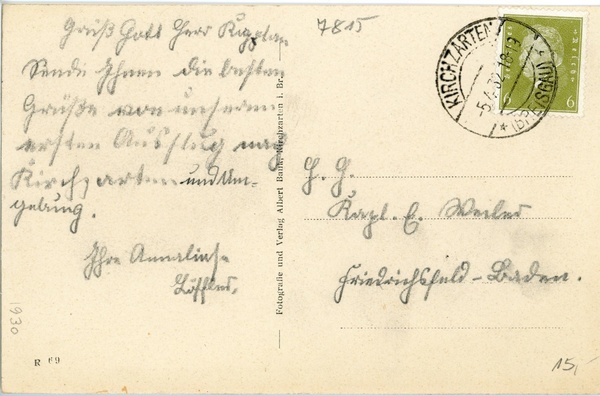 7815
Grüß Gott Herr Kaplan
Sende Ihnen die besten
Grüße von unserem
ersten Ausflug nach
Kirchzarten und Um-
gebung.
Ihre Annaliese
Löffler.
1930
R 69
Fotografie und Verlag Albert Bank, Kirchzarten i. Br.
KIRCHZARTEN
(BREISGAU)
6 6
H. H.
Kapl. E. Weiler
Friedrichsfeld-Baden.
15,-